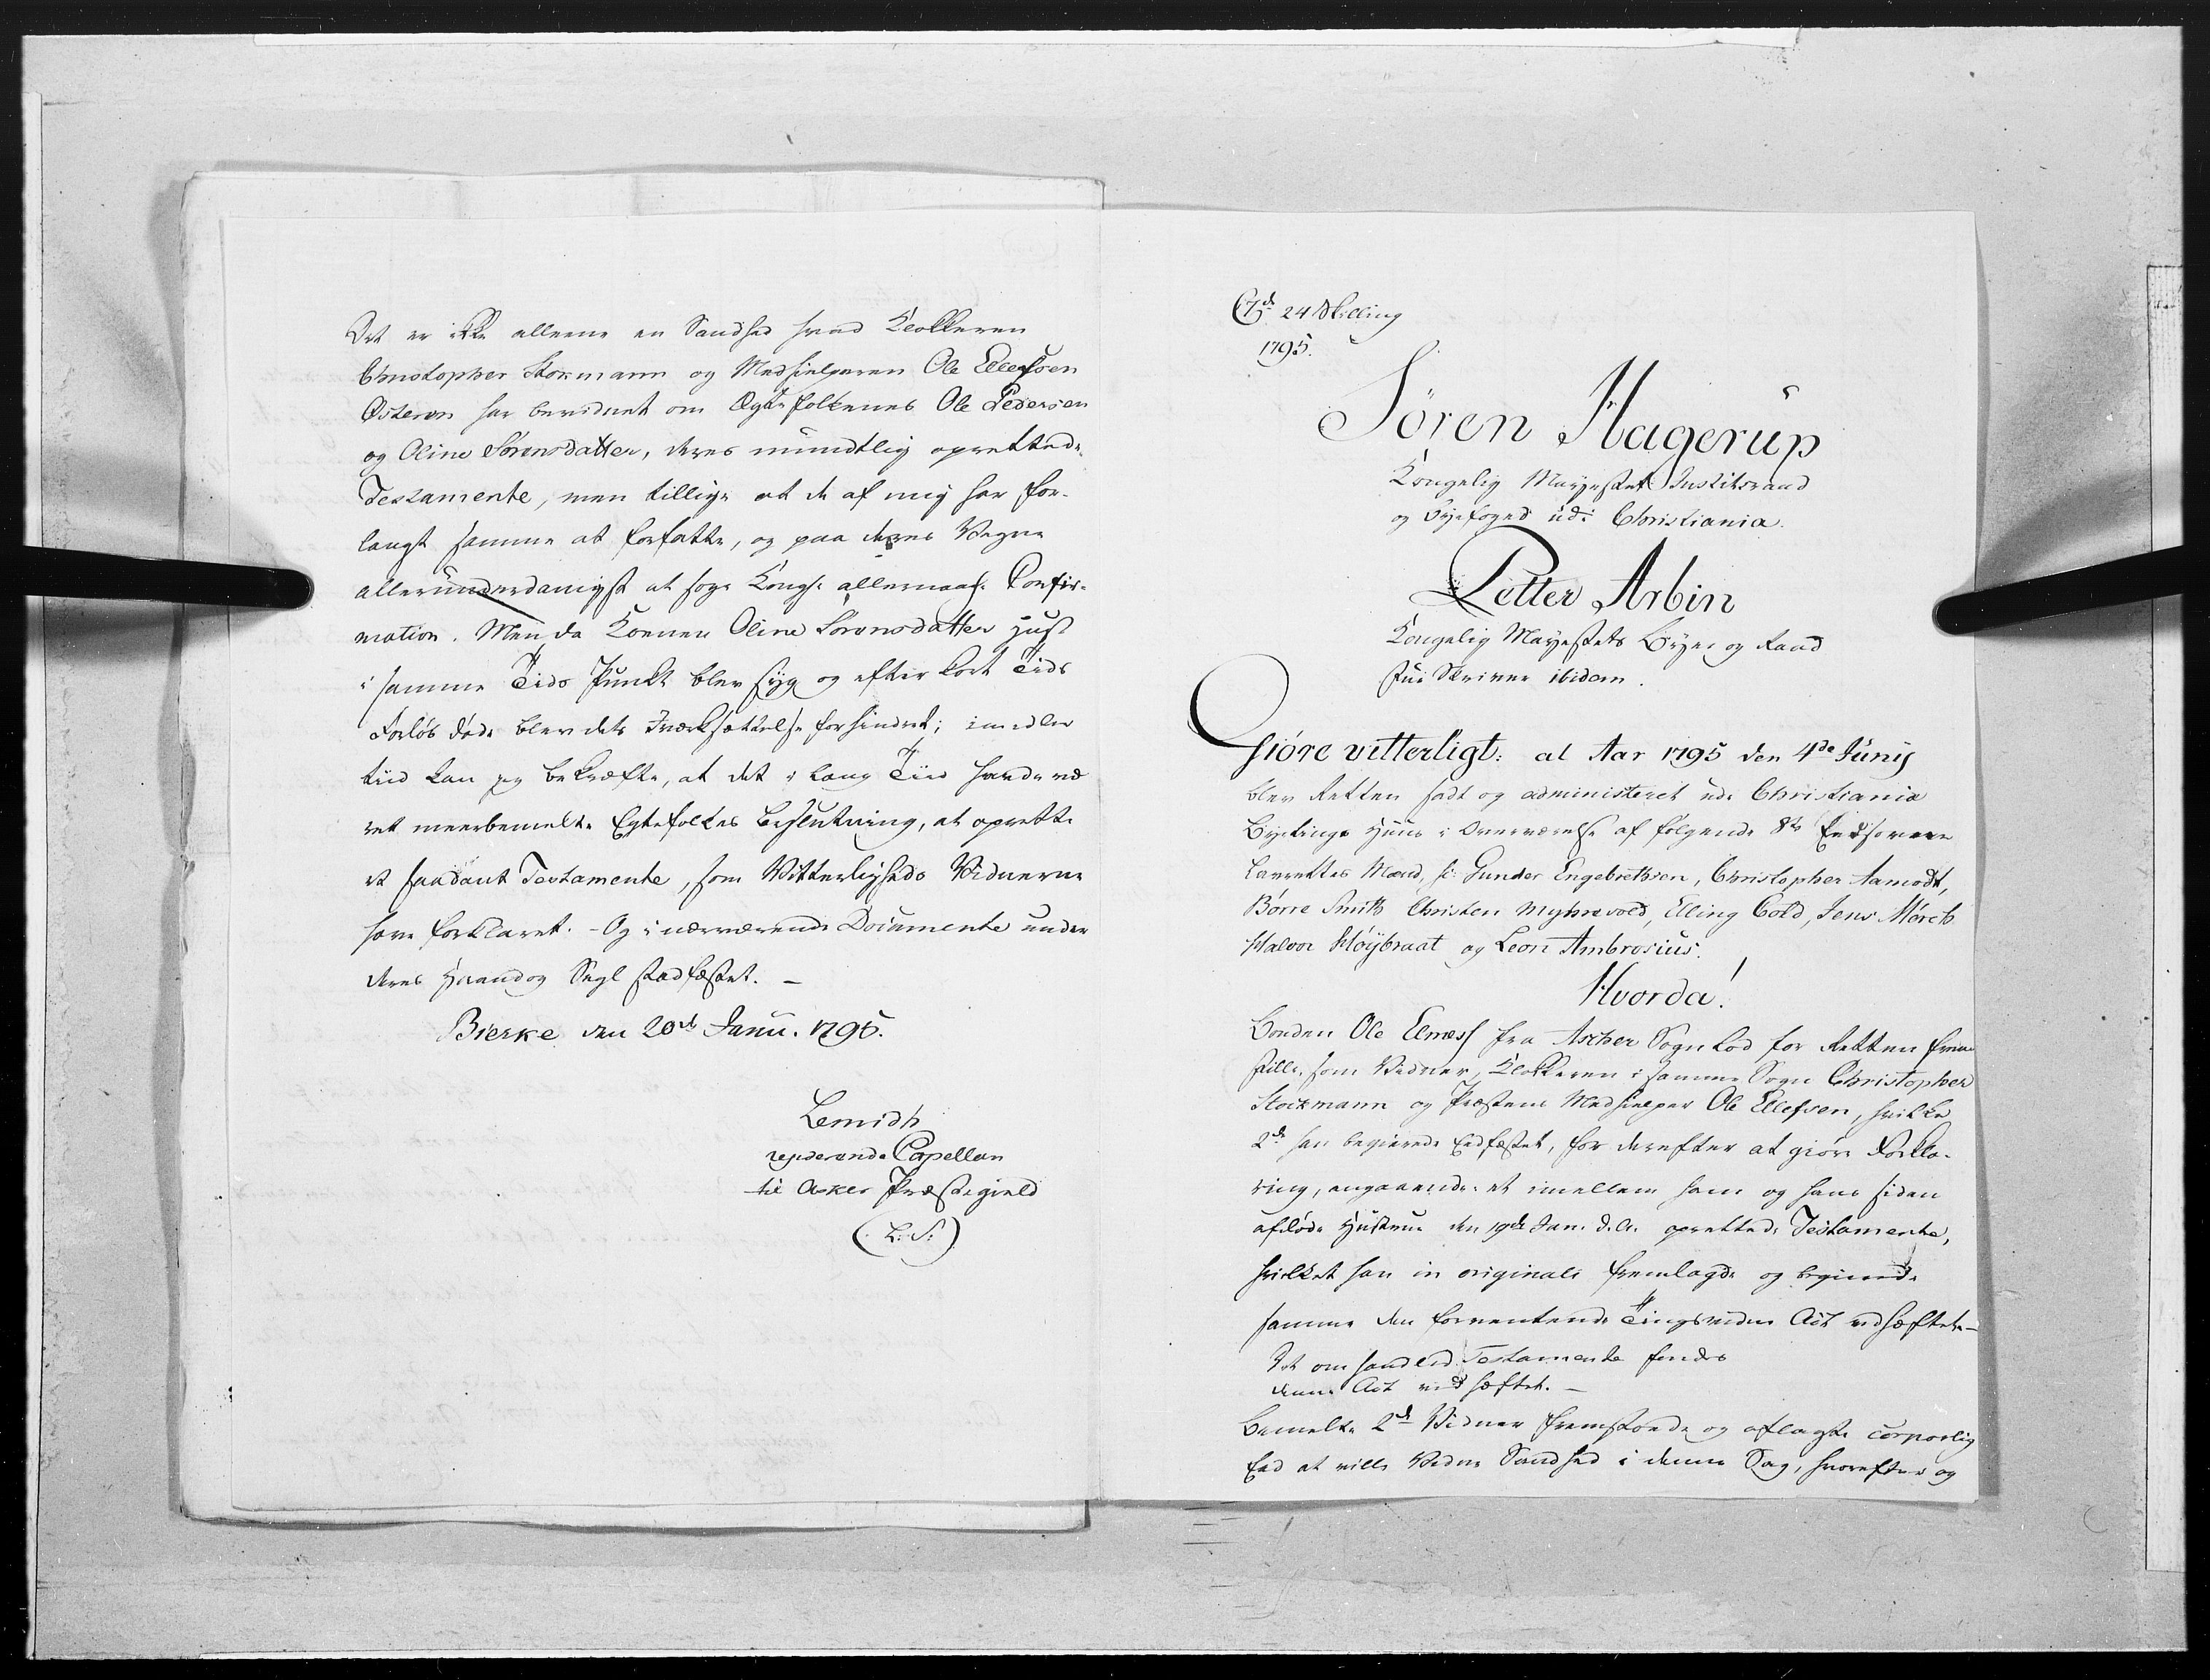 Det er ikke alleene en Sandhed hvad Klokkeren
Christopher Stokmann og Medhielperen Ole Ellefsen
Østeren har bevidnet om Ægtefolkenes Ole Pedersen
og Oline Sørensdatter, deres mundtlig oprettede
Testamente, men tillige at de af mig har for-
langt samme at forfatte, og paa deres Vegne
allerunderdanigst at søge Kongl. allernaad. Confir-
mation. Men da Konen Oline Sørensdatter just
i samme Tids Punkt blev syg og efter kort Tids
Forløb døde blev dets Iværksættelse forhindret; imidler
tiid kan jeg bekræfte, at det i lang Tiid havde væ
ret meerbemelte Egtefolkes Beslutning, at oprette
et saadant Testamente, som Vitterligheds Vidnerne
have forklaret. - Og i nærværende Documente under
deres Haand og Segl stadfæstet. -
Bierke den 20de Janu. 1795.
Lemich
residerende Capellan
til Asker Præstegield
(L. S.)
24 Skilling
1795.
Søren Hagerup
Kongelig Mayestet Justitsraad
og Byefoged udi Christiania.
Petter Arbin
Kongelig Mayestets Byes og Raad
stue Skriver ibidem.
Giøre vitterligt: at Aar 1795 den 4de Junij
blev Retten sadt og administeret udi Christiania
Byetings Huus i Overværelse af følgende 8te Eedsvorne
Laugrettes Mænd, s: Gunder Engebrethsen, Christopher Aamodt,
Børre Smith Christen Myhrevold, Elling Cold, Jens Mørch
Halvor Høybraat og Leon Ambrosius.
Hvorda!
Bonden Ole Elness fra Ascher Sogn lod for Retten frem
stille som Vidner, Klokkeren i samme Sogn Christopher
Stockmann og Præstens Medhielper Ole Ellefsen, hvilke
2de han begierede Eedfæstet, for derefter at giøre Forkla-
ring, angaaende et imellem ham og hans siden
afdøde Hustrue den 19de Jan. d. A. oprettede Testamente,
hvilket han in originali fremlagde og begierede
samme den forventende Tingsvidne Act vedhæftet -
Det omhandled Testamente findes
denne Act vedhæftet. -
Bemelte 2de Vidner fremstode og aflagte corporlig
Eed at ville Vidne Sandhed i denne Sag, hvorefter og